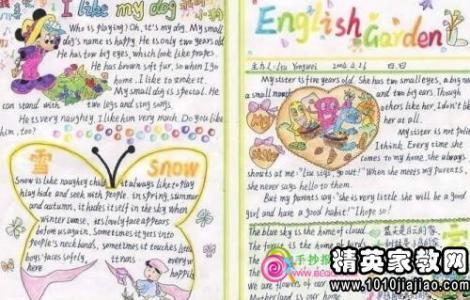 I like my dog
小狗
Who is playing? Oh, it's my dog. My small
dog's name is happy. He is only two years old.
He has two big eyes, which look like grapes.
He has brown soft fur, so when I go
home. I like to stroke it.
My small dog is special. He
can stand with two legs and sing songs.
He is very naughty. I like him very much. Do you like
him, too?
雪
SNOW
Snow is like naughty child it always like to play
play hide and seek with people in spring, summer
and autumn, it hades itself in the sky when
winter come, its lovely face appears
before us again, Sometimes it gets into
people's neck bands, sometimes it touches little
boys' faces softly,
runs
every w
here
happily
English
Garden
2002.2.26
My sister is five years old. She has two small eyes, a big nose
a small mouth
and two big ears. Though
others like her, I don't like
her at all.
My
Sister
My sister is not polite
I think. Every time she
comes to my home, she always
shouts at me "Lou siqi, go out!" When she meets my parents,
she never says hello to them.
But my parents say: "she is very little she will be a good
girl and have a good habit." I hope so!
The blue sky is the home of cloud.
The forest is the home of
We are flowers of
Motherland is our home
手抄报
精英家教网
www.1010jiajiao.com